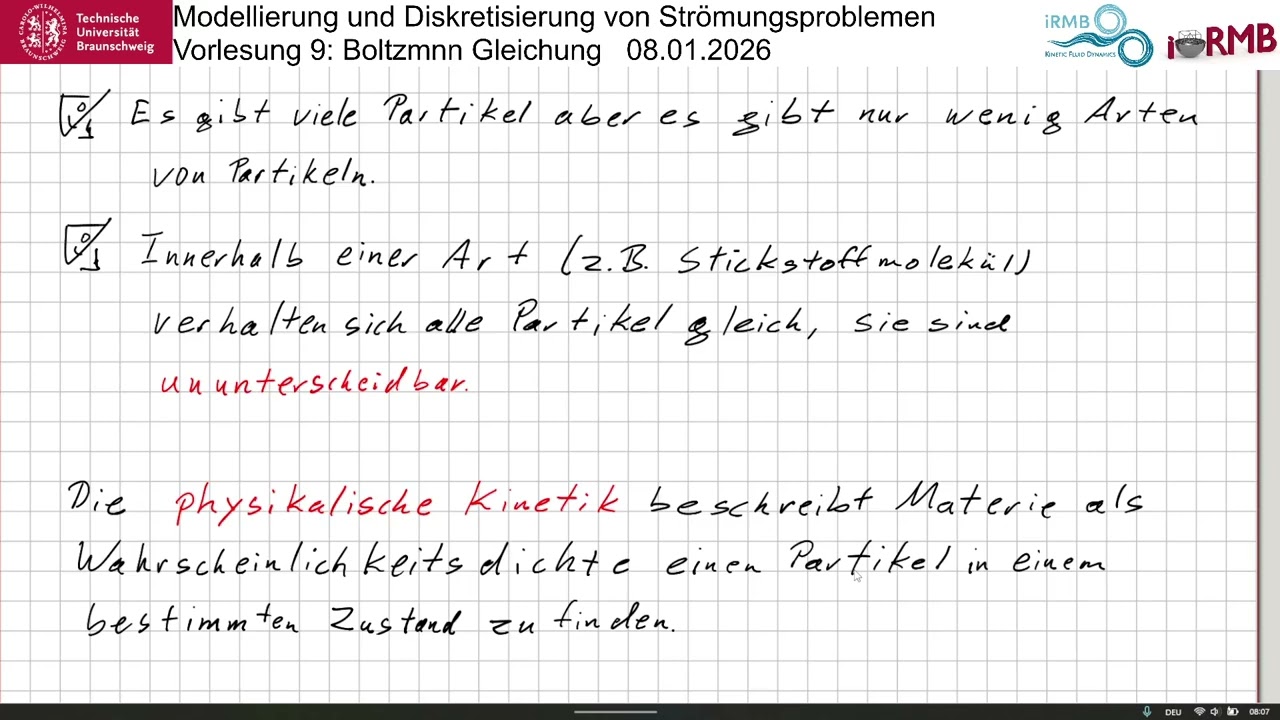 Technische
Universität
Braunschweig
Modellierung und Diskretisierung von Strömungsproblemen
Vorlesung 9: Boltzmnn Gleichung 08.01.2026
iRMB
KINETIC FLUID DYNAMICS
iRMB
Es gibt viele Partikel aber es gibt nur wenig Arten
von Partikeln.
Innerhalb einer Art (z.B. Stickstoffmolekül)
verhalten sich alle Partikel gleich, sie sind
ununterscheidbar.
Die physikalische Kinetik beschreibt Materie als
Wahrscheinlichkeitsdichte einen Partikel in einem
bestimmten Zustand zu finden.
DEU 08:07